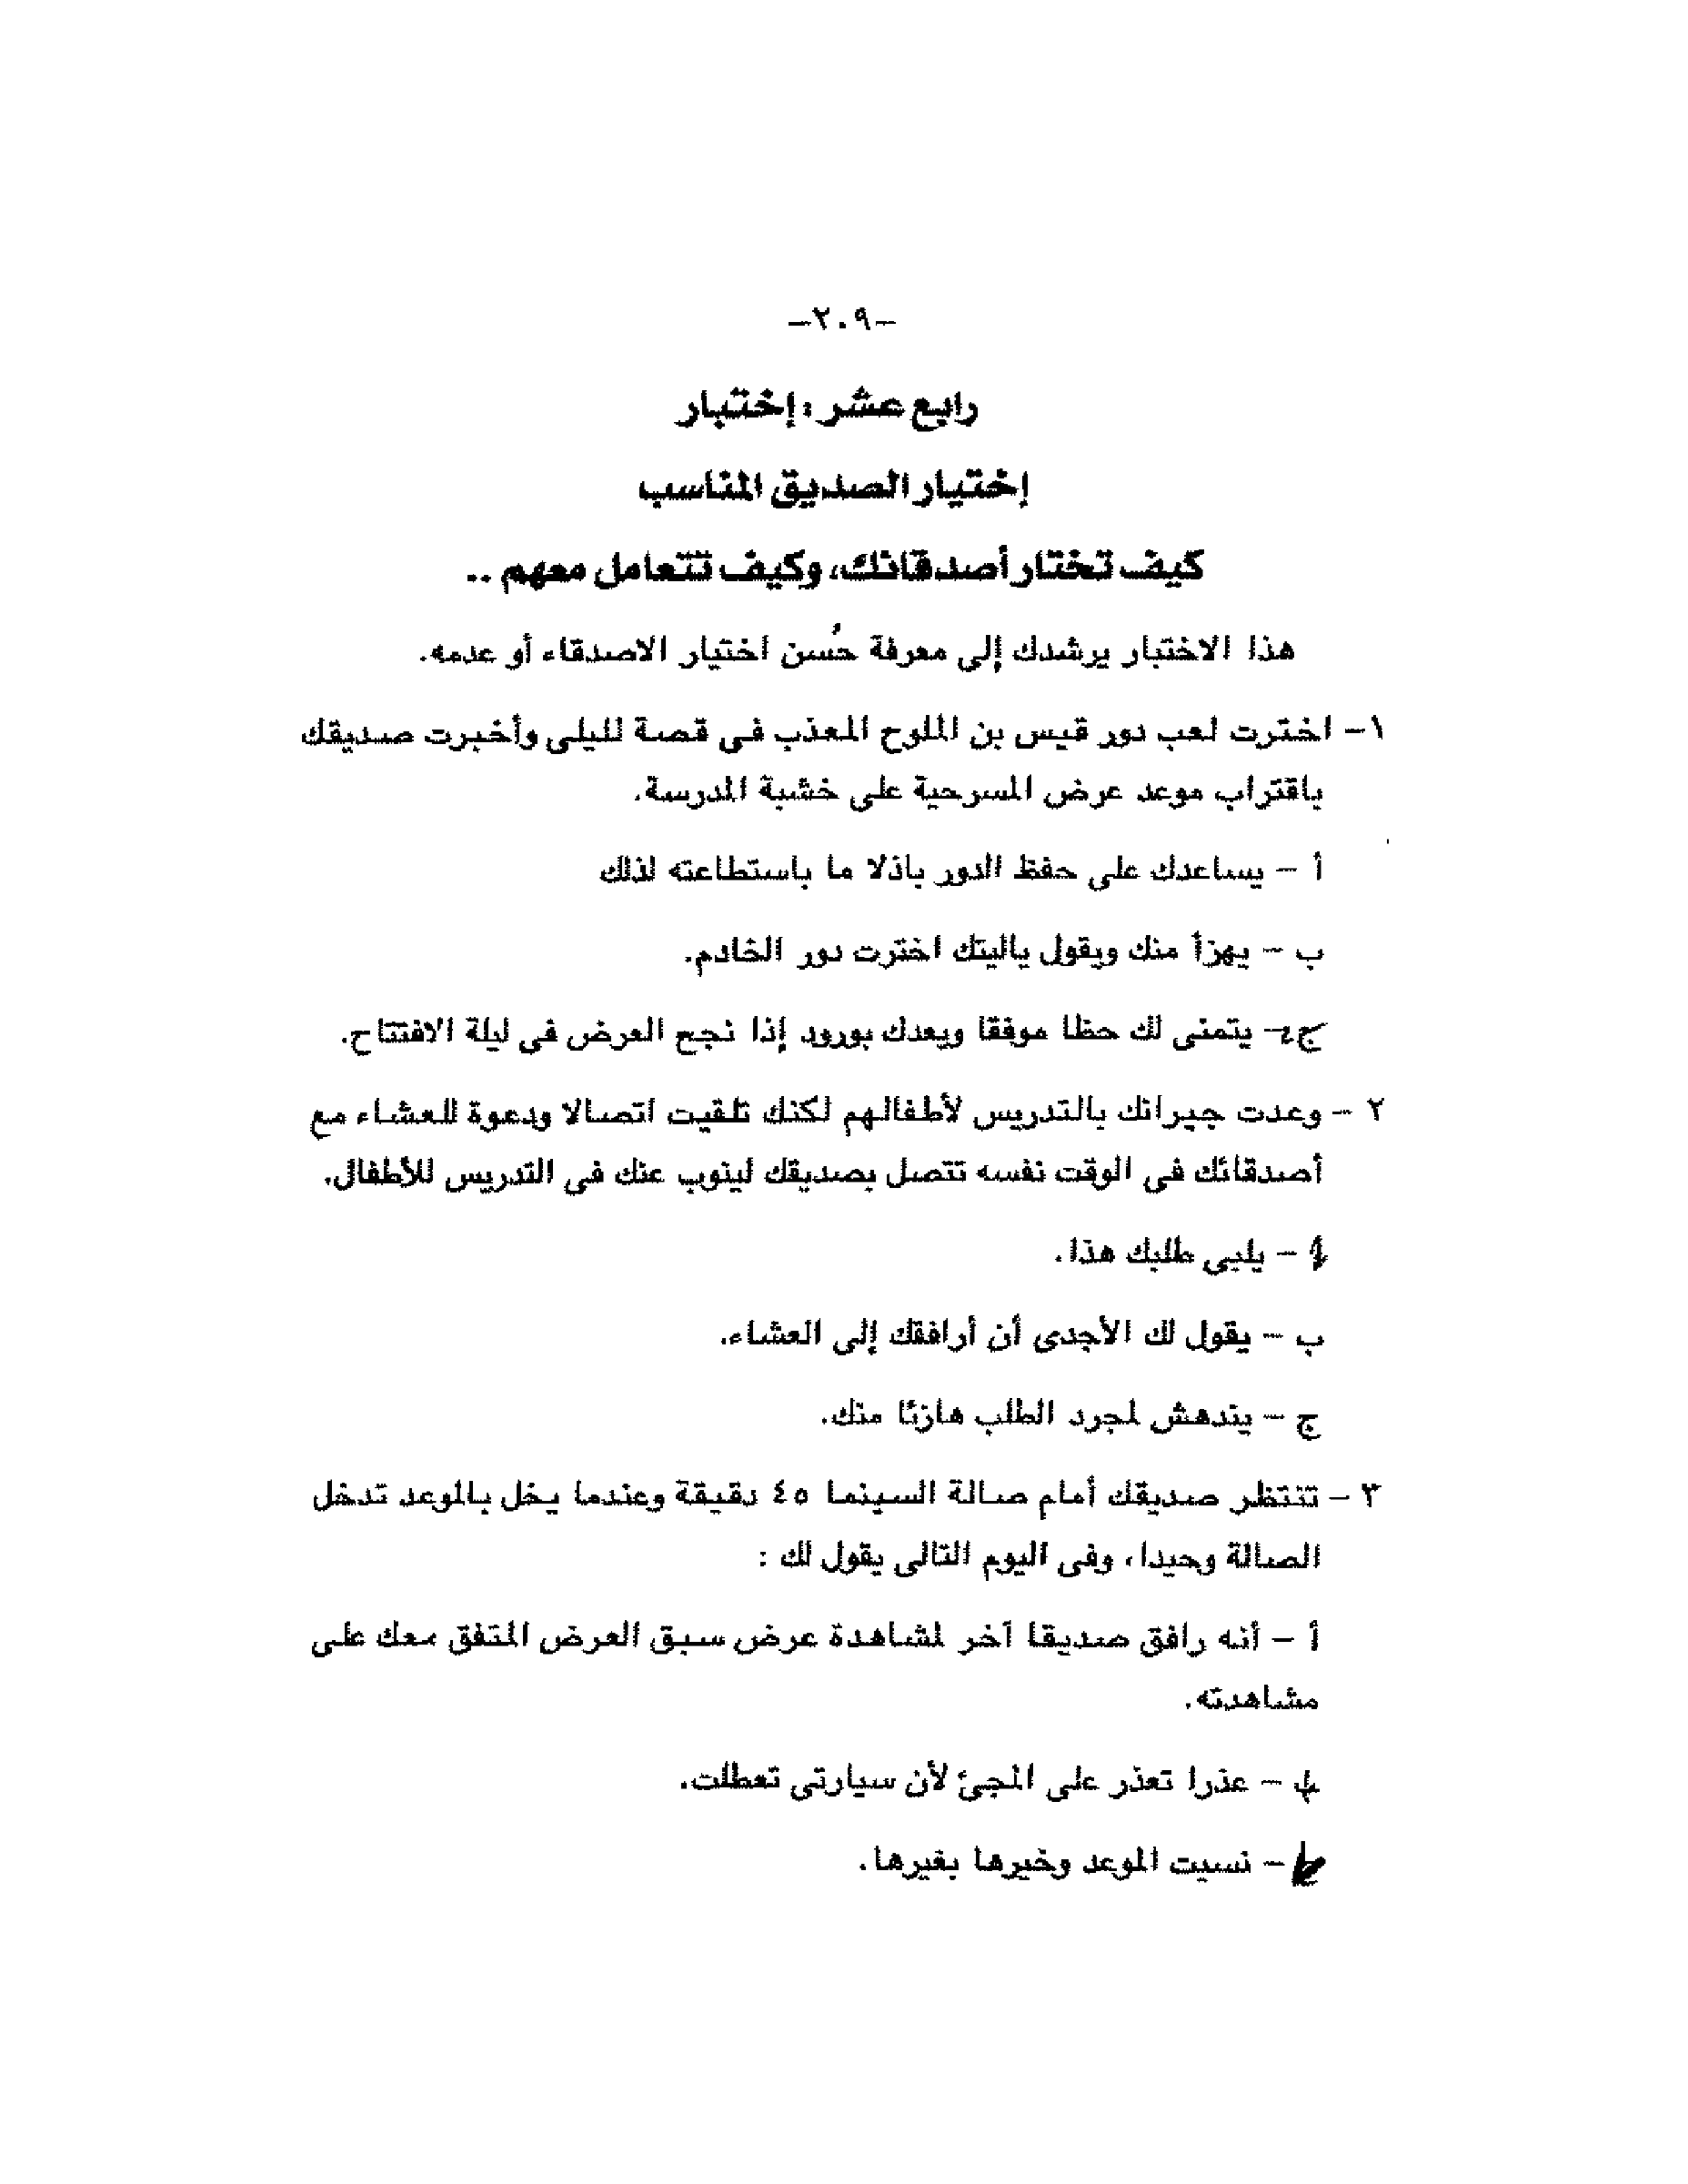 -٢٠٩-
رابع عشر : إختبار
إختيار الصديق المناسب
كيف تختار أصدقائك، وكيف تتعامل معهم ..
هذا الاختبار يرشدك إلى معرفة حُسن اختيار الاصدقاء أو عدمه.
١- اخترت لعب دور قيس بن الملوح المعذب فى قصة لليلى وأخبرت صديقك
باقتراب موعد عرض المسرحية على خشبة المدرسة.
أ - يساعدك على حفظ الدور باذلا ما باستطاعته لذلك
ب - يهزأ منك ويقول ياليتك اخترت دور الخادم.
ج - يتمنى لك حظا موفقا ويعدك بورود إذا نجح العرض فى ليلة الافتتاح.
٢ - وعدت جيرانك بالتدريس لأطفالهم لكنك تلقيت اتصالا ودعوة للعشاء مع
أصدقائك فى الوقت نفسه تتصل بصديقك لينوب عنك فى التدريس للأطفال.
أ - يلبى طلبك هذا.
ب - يقول لك الأجدى أن أرافقك إلى العشاء.
ج - يندهش لمجرد الطلب هازئا منك.
٣ - تنتظر صديقك أمام صالة السينما ٤٥ دقيقة وعندما يخل بالموعد تدخل
الصالة وحيدا، وفى اليوم التالى يقول لك :
أ - أنه رافق صديقا آخر لمشاهدة عرض سبق العرض المتفق معك على
مشاهدته.
ب - عذرا تعذر على المجئ لأن سيارتى تعطلت.
ج - نسيت الموعد وخيرها بغيرها.